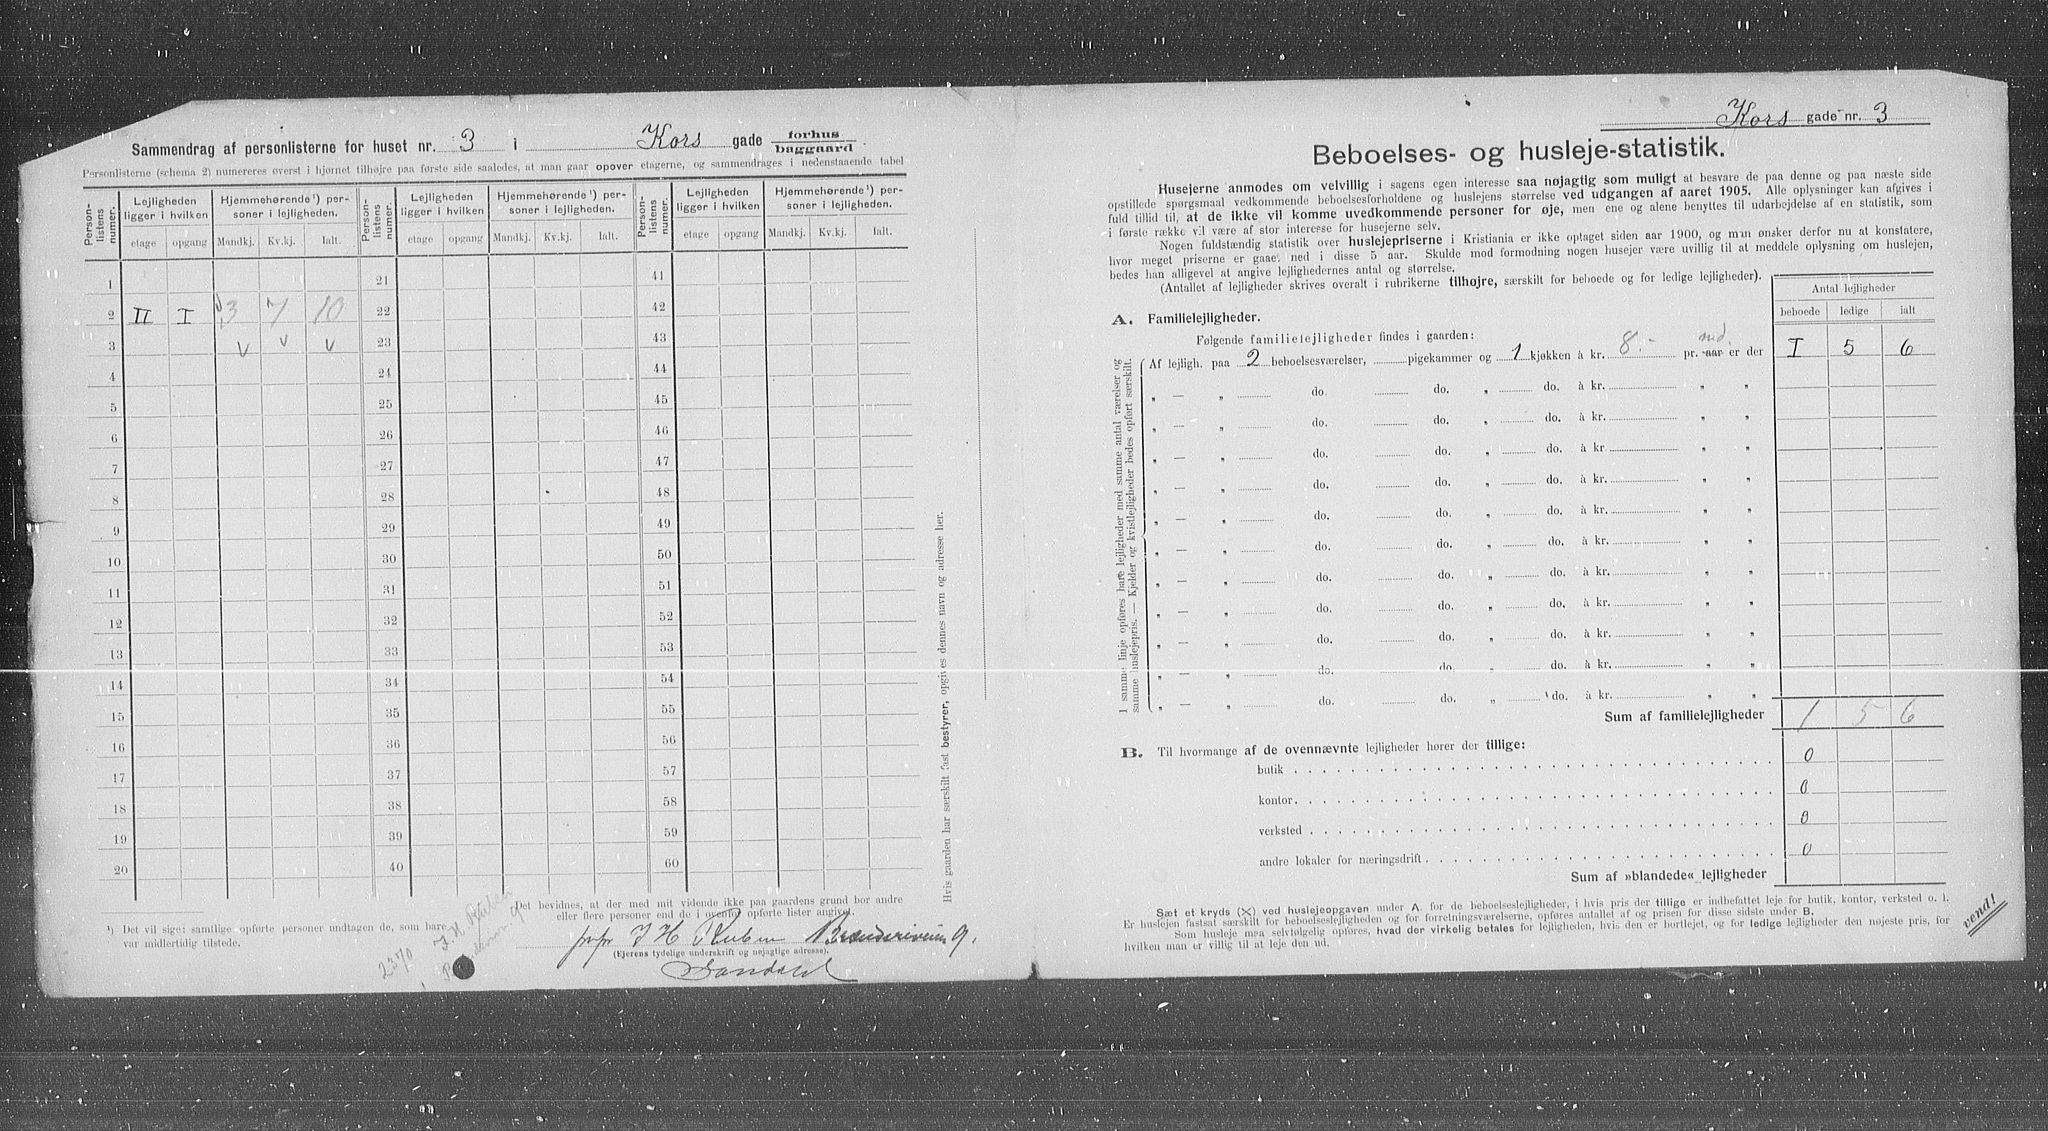 Sammendrag af personlisterne for huset nr. 3 i Kors gade forhus baggaard
Personlisterne (schema 2) numereres øverst i hjørnet tilhøjre paa første side saaledes, at man gaar opover etagerne, og sammendrages i nedenstaaende tabel
Person-listens numer. Lejligheden ligger i hvilken Hjemmehørende ¹) personer i lejligheden. Person-listens numer. Lejligheden ligger i hvilken Hjemmehørende ¹) personer i lejligheden. Person-listens numer. Lejligheden ligger i hvilken Hjemmehørende ¹) personer i lejligheden.
etage opgang Mandkj. Kv.kj. Ialt. etage opgang Mandkj. Kv.kj. Ialt. etage opgang Mandkj. Kv.kj. Ialt.
1 21 41
2 II I 3 7 10 22 42
3 v v v 23 43
4 24 44
5 25 45
6 26 46
7 27 47
8 28 48
9 29 49
10 30 50
11 31 51
12 32 52
13 33 53
14 34 54
15 35 55
16 36 56
17 37 57
18 38 58
19 39 59
20 40 60
Hvis gaarden har særskilt fast bestyrer, opgives dennes navn og adresse her.
Det bevidnes, at der med mit vidende ikke paa gaardens grund bor andre
eller flere personer end de i ovenfor opførte lister angivet.
¹) Det vil sige: samlige opførte personer undtagen de, som bare
var midlertidig tilstede.
2370
J. H. Ruben
J H Ruben 9.
(Ejerens tydelige underskrift og nøjagtige adresse).
Kors gade nr. 3
Beboelses- og husleje-statistik.
Husejerne anmodes om velvillig i sagens egen interesse saa nøjagtig som muligt at besvare de paa denne og paa næste side
opstillede spørgsmaal vedkommende beboelsesforholdene og huslejens størrelse ved udgangen af aaret 1905. Alle oplysninger kan afgives i
fuld tillid til, at de ikke vil komme uvedkommende personer for øje, men ene og alene benyttes til udarbejdelse af en statistik, som
i første række vil være af stor interesse for husejerne selv.
Nogen fuldstændig statistik over huslejepriserne i Kristiania er ikke optaget siden aar 1900, og man ønsker derfor nu at konstatere,
hvor meget priserne er gaaet ned i disse 5 aar. Skulde mod formodning nogen husejer være uvillig til at meddele oplysning om huslejen,
bedes han alligevel at angive lejlighedernes antal og størrelse.
(Antallet af lejligheder skrives overalt i rubrikerne tilhøjre, særskilt for beboede og for ledige lejligheder).
Antal lejligheder
beboede ledige ialt
A. Familielejligheder.
Følgende familielejligheder findes i gaarden:
Af lejligh. paa 2 beboelsesværelser, pigekammer og 1 kjøkken à kr. 8.- pr. aar md. er der I 5 6
„ — „ do. do. „ do. à kr. „ „
„ — „ do. do. „ do. à kr. „ „
„ — „ do. do. „ do. à kr. „ „
„ — „ do. do. „ do. à kr. „ „
„ — „ do. do. „ do. à kr. „ „
„ — „ do. do. „ do. à kr. „ „
„ — „ do. do. „ do. à kr. „ „
„ — „ do. do. „ do. à kr. „ „
„ — „ do. do. „ do. à kr. „ „
„ — „ do. do. „ do. à kr. „ „
„ — „ do. do. „ do. à kr. „ „
I samme linje opføres bare lejligheder med samme antal værelser og
samme huslejepris. — Kjelder og kvistlejligheder bedes opført særskilt.
Sum af familielejligheder 1 5 6
B. Til hvormange af de ovennævnte lejligheder hører der tillige:
butik 0
kontor 0
verksted 0
andre lokaler for næringsdrift 0
Sum af »blandede« lejligheder
Sæt et kryds (X) ved huslejeopgaven under A. for de beboelseslejligheder, i hvis pris der tillige er indbefattet leje for butik, kontor, verksted o. l.
Er huslejen fastsat særskilt for beboelseslejligheden og for forretningsværelserne, opføres antallet af og prisen for disse sidste under B.
Som husleje maa selvfølgelig opføres, hvad der virkelig betales for lejligheden, hvis den er bortlejet, og for ledige lejligheder den nøjeste pris, for
hvilken man er villig til at leje den ud.
vend!